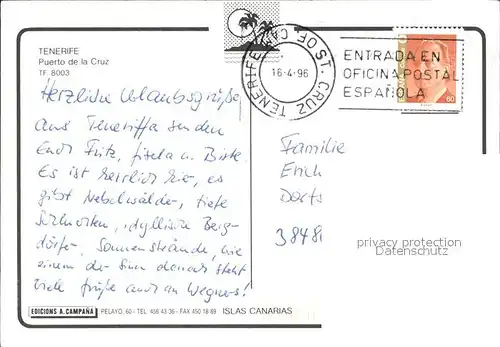 TENERIFE
Puerto de la Cruz
TF 8003
Herzliche Urlaubsgrüße
aus Teneriffa senden
Euch Fritz, Gisela u. Birte.
Es ist herrlich hier, es
gibt Nebelwälder, tiefe
Schluchten, idyllische Berg-
dörfer, Sonnenstrände, wie
einem der Sinn danach steht
Viele Grüße auch an Wegners!
EDICIONS A. CAMPAÑA PELAYO, 60 - TEL. 456 43 36 - FAX 450 18 69 ISLAS CANARIAS
ST. CRUZ TENERIFE
16-4-96
ENTRADA EN
OFICINA POSTAL
ESPAÑOLA
60
Familie
Erich
Dorts
38481
privacy protection
Datenschutz